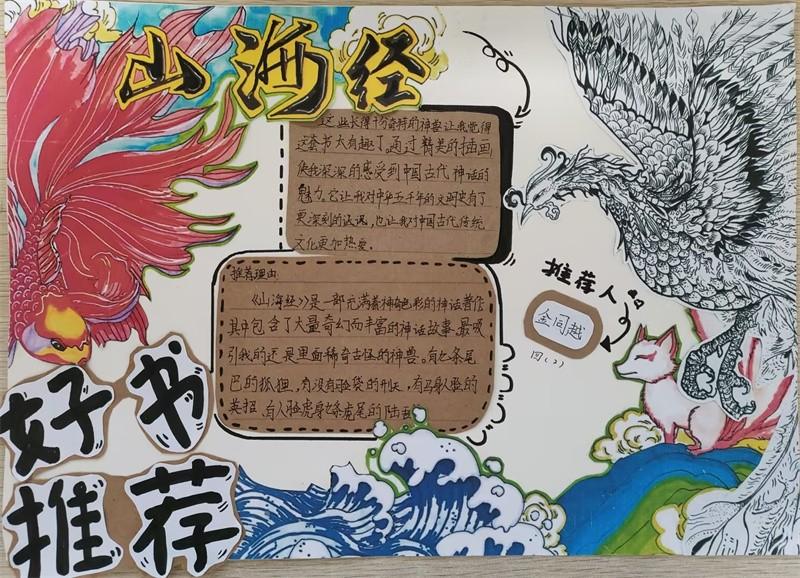 山海经
这些长得十分奇特的神兽让我觉得
这套书大有趣了。通过精美的插画
使我深深的感受到中国古代神话的
魅力。它让我对中华五千年的文明史有了
更深刻的认识,也让我对中国古代传统
文化更加热爱。
推荐理由:
《山海经》是一部充满着神色彩的神话著作
其中包含了大量奇幻而丰富的神话故事.最吸
引我的还是里面稀奇古怪的神兽。有九条尾
巴的狐狸,有没有脑袋的刑天,有马身人脸的
英招、有人脸虎身九条虎尾的陆吾
推荐人
金同越
四(2)
好书
推荐